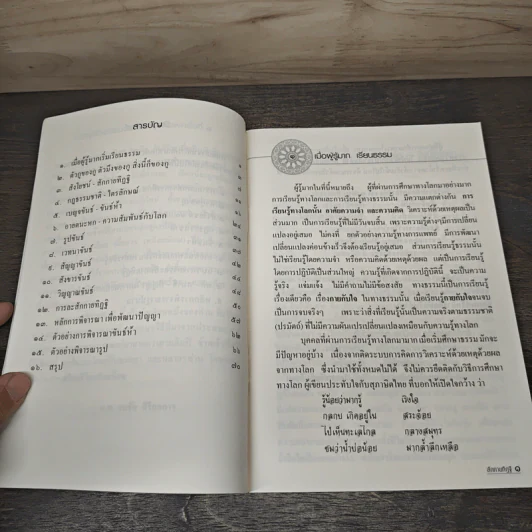 สารบัญ
๑. เมื่อผู้รู้มากเริ่มเรียนธรรม ๑
๒. ตัวกูของกู ตัวมึงของกู สิ่งนี้ก็ของกู
๓. สังโยชน์ - สักกายทิฏฐิ
๔. กฎธรรมชาติ - ไตรลักษณ์
๕. เบญจขันธ์ - ขันธ์ห้า
๖. อายตนะหก - ความสัมพันธ์กับโลก
๗. รูปขันธ์
๘. เวทนาขันธ์
๙. สัญญาขันธ์
๑๐. สังขารขันธ์
๑๑. วิญญาณขันธ์
๑๒. การละสักกายทิฏฐิ
๑๓. หลักการพิจารณา เพื่อพัฒนาปัญญา
๑๔. ตัวอย่างการพิจารณาขันธ์ห้า
๑๕. ตัวอย่างพิจารณารูป
๑๖. สรุป ๗๐
๑ เมื่อผู้รู้มาก เรียนธรรม
ผู้รู้มากในที่นี้หมายถึง ผู้ที่ผ่านการศึกษาทางโลกมาอย่างมาก
การเรียนรู้ทางโลกและการเรียนรู้ทางธรรมนั้น มีความแตกต่างกัน การ
เรียนรู้ทางโลกนั้น อาศัยความจำ และความคิด วิเคราะห์ด้วยเหตุผลเป็น
ส่วนมาก เป็นการเรียนรู้ที่ไม่มีวันจบลง เพราะความรู้ต่างๆมีการเปลี่ยน
แปลงอยู่เสมอ ไม่คงที่ ยกตัวอย่างความรู้ทางการแพทย์ มีการพัฒนา
เปลี่ยนแปลงค่อนข้างเร็วจึงต้องเรียนรู้อยู่เสมอ ส่วนการเรียนรู้ธรรมนั้น
ไม่ใช่เรียนรู้โดยความจำ หรือความคิดด้วยเหตุด้วยผล แต่เป็นการเรียนรู้
โดยการปฏิบัติเป็นส่วนใหญ่ ความรู้ที่เกิดจากการปฏิบัตินี้ จะเป็นความ
รู้จริง แจ่มแจ้ง ไม่มีคำถามไม่มีข้อสงสัย ทางธรรมนี้เป็นการเรียนรู้
เรื่องเดียวคือ เรื่องกายกับใจ ในทางธรรมนั้น เมื่อเรียนรู้กายกับใจจนจบ
เป็นการจบจริงๆ เพราะว่าสิ่งที่เรียนรู้นั้นเป็นความจริงตามธรรมชาติ
(ปรมัตถ์) ที่ไม่มีความผันแปรเปลี่ยนแปลงเหมือนกับความรู้ทางโลก
บุคคลที่ผ่านการเรียนรู้ทางโลกมามาก เมื่อเริ่มศึกษาธรรม มักจะ
มีปัญหาอยู่บ้าง เนื่องจากติดระบบการคิดการวิเคราะห์ด้วยเหตุด้วยผล
จากทางโลก ซึ่งนำมาใช้ทั้งหมดไม่ได้ จึงไม่ควรยึดติดกับวิธีการศึกษา
ทางโลก ผู้เขียนประทับใจกับสุภาษิตไทย ที่บอกให้เปิดใจกว้าง ว่า
รู้น้อยว่ามากรู้ เริงใจ
กลกบ เกิดอยู่ใน สระจ้อย
ไป่เห็นทะเลไกล กลางสมุทร
ชมว่าน้ำบ่อน้อย มากล้ำลึกเหลือ
สักกายทิฏฐิ ๑